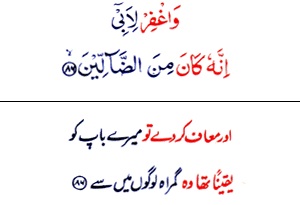 وَاغْفِرْ لِاَبِیْۤ
اِنَّهٗ كَانَ مِنَ الضَّآلِّیْنَ ۙ﴿۸۶﴾
اور معاف کر دے تو میرے باپ کو
یقیناً تھا وہ گمراہ لوگوں میں سے ﴿۸۶﴾